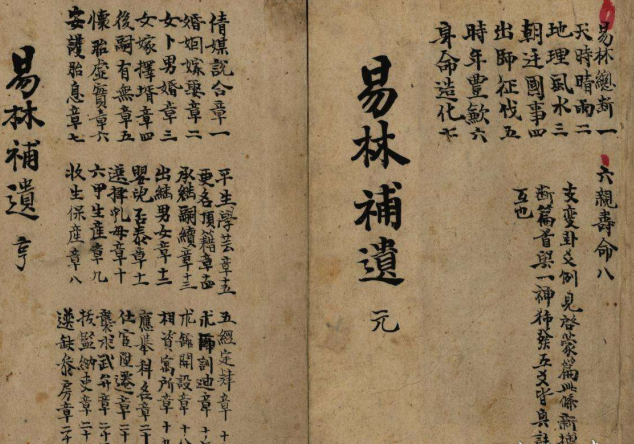 易林總斷一
天時晴雨二
地理風水三
朝廷國事四
出師征伐五
時年豐歉六
身命造化七
六親壽命八
支變卦爻例見啓蒙篇此條新增
断篇首與一神發五爻皆具註
互也
易林補遺 元
倩媒説合章一
婚姻嫁娶章二
女卜男婚章三
女嫁擇壻章四
後嗣有無章五
懷胎虛實章六
安護胎息章七
平生學芸章十五
更名頂籍章十四
承繼嗣續章十三
出繼男女章十二
嬰児否泰章十一
選擇乳母章十
六甲生産章九
收生保産章八
五經定肄章十
求師訓迪章十
求館開設章十八
相資寓所章十九
應舉科名章二十
仕宦陞遷章二十
襲武弁章二十
援監納吏章二十
選缺參房章二十
易林補遺 亨